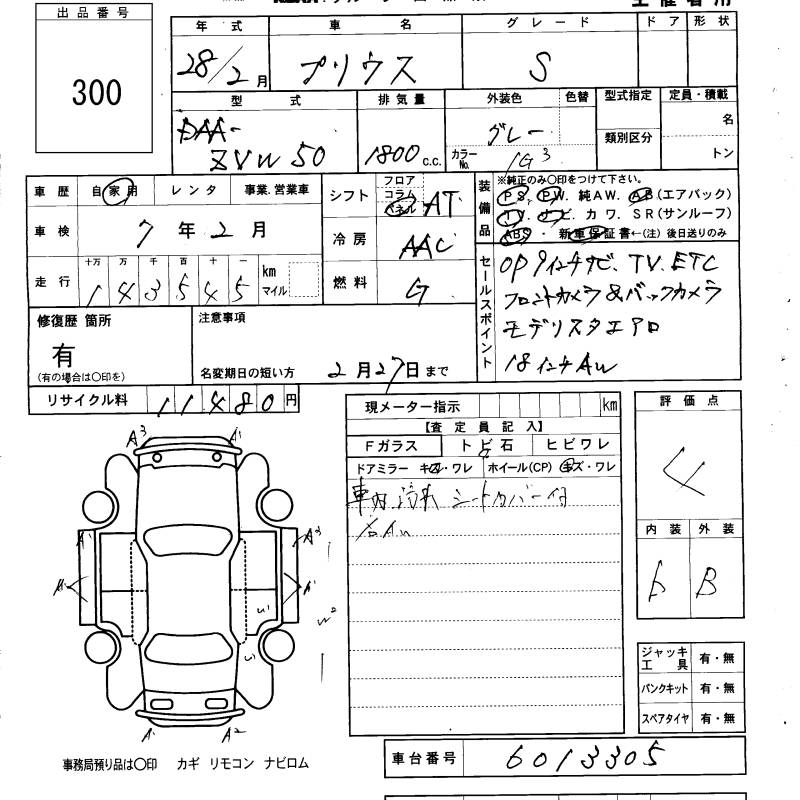 出品番号
300
年式 車名 グレード ドア 形状
28/2月 プリウス S
型式 排気量 外装色 色替 型式指定 定員・積載
DAA-
ZVW50 1800 c.c. グレー
カラーNo. 1G3
類別区分 名
トン
車歴 自家用 レンタ 事業.営業車
車検 7年2月
走行 十万 万 千 百 十 一
143545 km マイル
シフト フロア コラム パネル AT
冷房 AAC
燃料 G
装備品
※純正のみ〇印をつけて下さい。
PS. PW. 純AW. AB(エアバック)
TV. ナビ. カワ. SR(サンルーフ)
ABS・新車保証書←(注) 後日送りのみ
セールスポイント
OP 9インチナビ、TV、ETC
フロントカメラ&バックカメラ
モデリスタエアロ
18インチAW
修復歴 箇所
有
(有の場合は〇印を)
注意事項
名変期日の短い方 2月27日まで
リサイクル料 11480円
現メーター指示 km
【査定員記入】
Fガラス トビ石 ヒビワレ
ドアミラー キズ・ワレ ホイール(CP) キズ・ワレ
車内汚れ シートカバー付
評価点
内装 外装
B
A3 A1
A1 A3
A1 A1
W2
A1 A2
ジャッキ工具 有・無
パンクキット 有・無
スペアタイヤ 有・無
事務局預り品は〇印 カギ リモコン ナビロム
車台番号 6013305